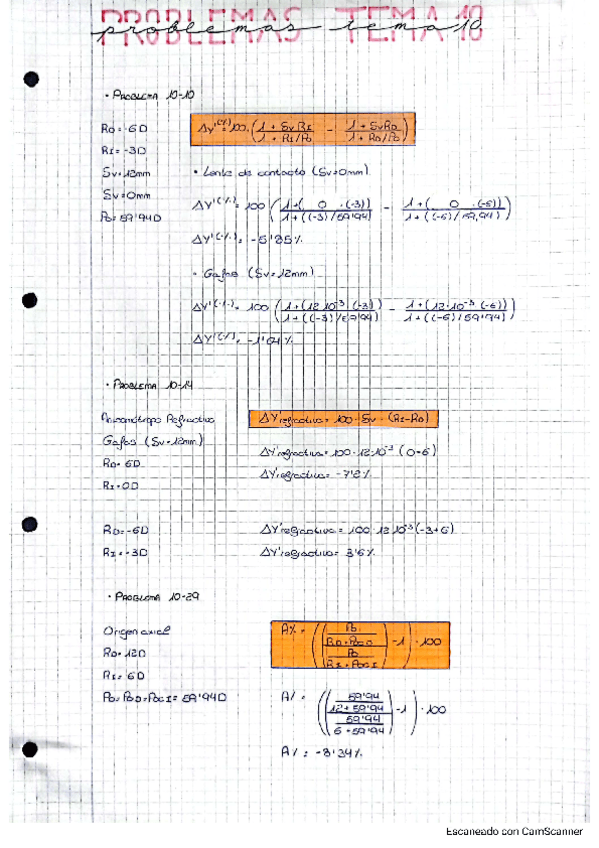 PROBLEMAS TEMA 10
problemas tema 10
· PROBLEMA 10-10
RD = -6D
RI = -3D
Sv = 12mm
Sv = 0mm
Po = 59'94D
ΔY'(%) = 100 · ( (1 + Sv RI) / (1 + RI/Po) - (1 + Sv RD) / (1 + RD/Po) )
· Lente de contacto (Sv = 0mm)
ΔY'(%) = 100 ( (1 + (0 · (-3))) / (1 + ((-3)/59'94)) - (1 + (0 · (-6))) / (1 + ((-6)/59'94)) )
ΔY'(%) = -5'85%
· Gafas (Sv = 12mm)
ΔY'(%) = 100 ( (1 + (12·10⁻³ · (-3))) / (1 + ((-3)/59'94)) - (1 + (12·10⁻³ · (-6))) / (1 + ((-6)/59'94)) )
ΔY'(%) = -1'64%
· PROBLEMA 10-14
Anisométrope Refractivo
Gafas (Sv = 12mm)
RD = 6D
RI = 0D
ΔY'refractiva = 100 · Sv · (RI - RD)
ΔY'refractiva = 100 · 12·10⁻³ (0-6)
ΔY'refractiva = -7'2%
RD = -6D
RI = -3D
ΔY'refractiva = 100 · 12·10⁻³ (-3+6)
ΔY'refractiva = 3'6%
· PROBLEMA 10-29
Origen axial
RD = 12D
RI = 6D
Po = PocD = PocI = 59'94D
A% = ( ( (Po / (RD + PocD)) / (Po / (RI + PocI)) ) - 1 ) · 100
A% = ( ( (59'94 / (12 + 59'94)) / (59'94 / (6 + 59'94)) ) - 1 ) · 100
A% = -8'34%
Escaneado con CamScanner